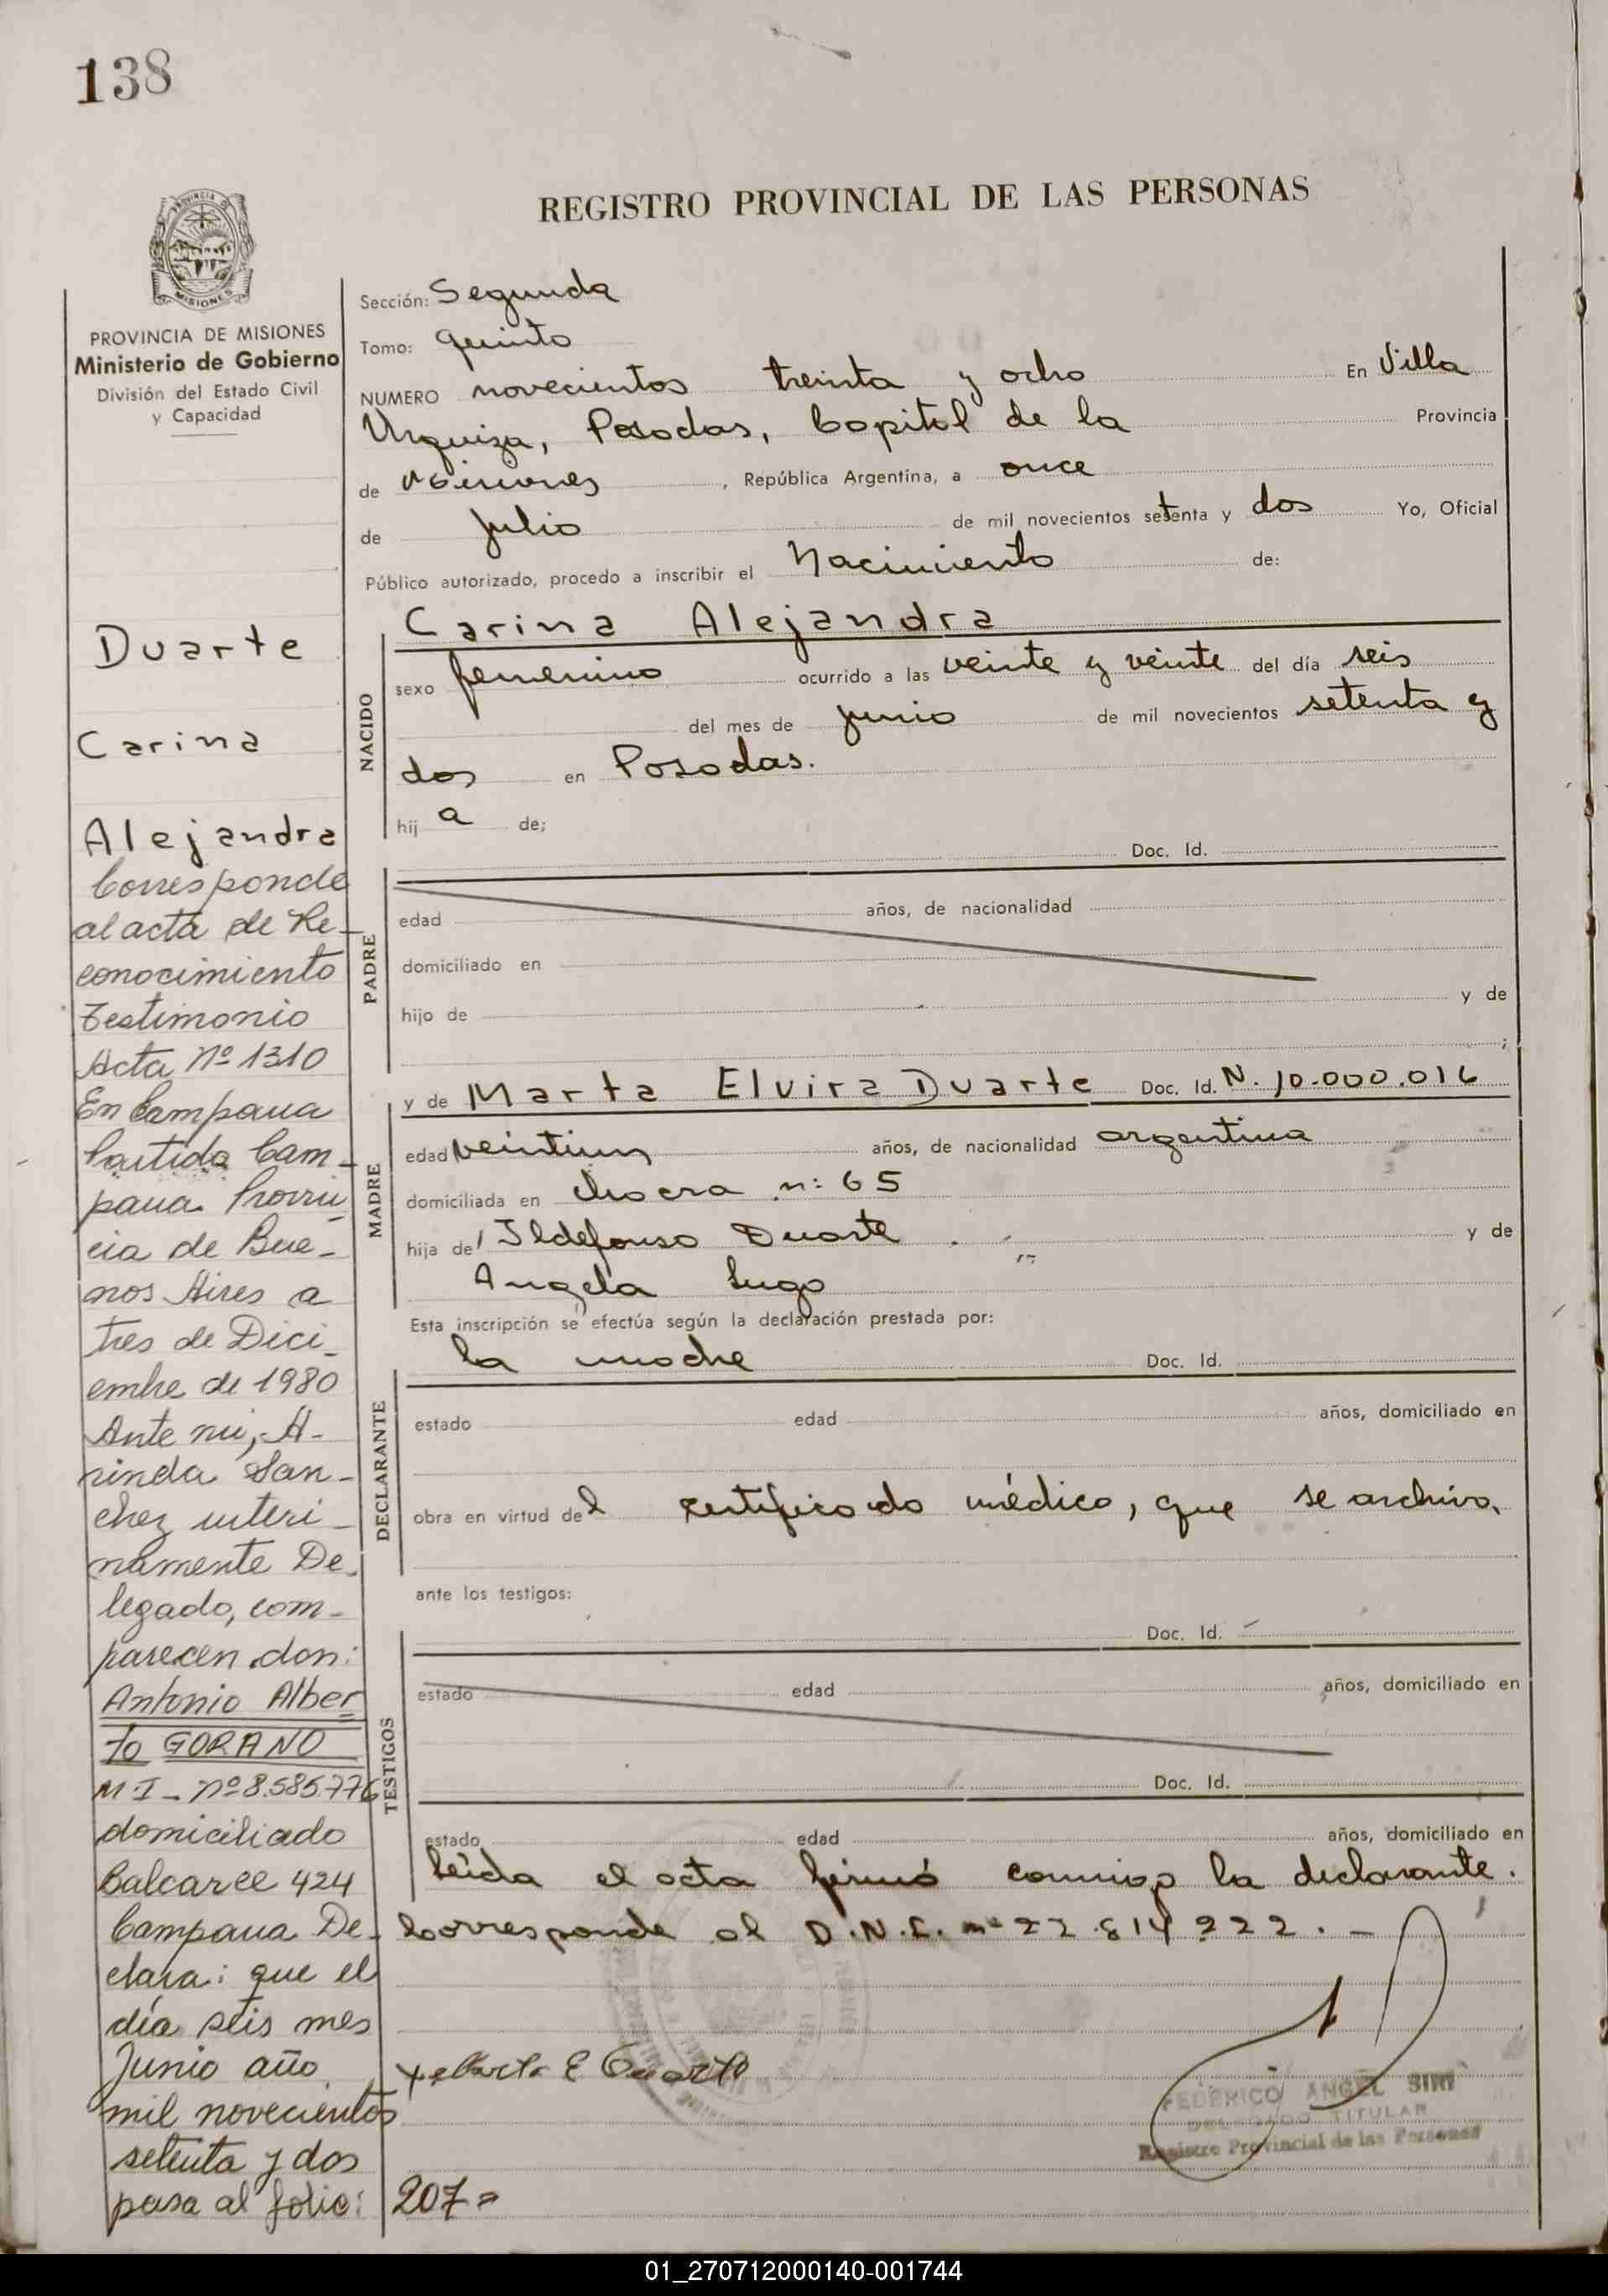 138
REGISTRO PROVINCIAL DE LAS PERSONAS
PROVINCIA DE
MISIONES
PROVINCIA DE MISIONES
Ministerio de Gobierno
División del Estado Civil
y Capacidad
Duarte
Carina
Alejandra
Corresponde
al acta de Re-
conocimiento
Testimonio
Acta Nº 1310
En Campana
Partido Cam-
pana Provin-
cia de Bue-
nos Aires a
tres de Dici-
embre de 1980
Ante mi, A-
rinda San-
chez interi-
namente De-
legado, com-
parecen don:
Antonio Alber
to GORANO
M I - Nº 8.585.776
domiciliado
Balcarce 424
Campana De-
clara: que el
día seis mes
Junio año
mil novecientos
setenta y dos
pasa al folio: 207=
Sección: Segunda
Tomo: quinto
NUMERO novecientos treinta y ocho En Villa
Urquiza, Posadas, Capital de la Provincia
de Misiones, República Argentina, a once
de Julio de mil novecientos setenta y dos Yo, Oficial
Público autorizado, procedo a inscribir el Nacimiento de:
NACIDO
Carina Alejandra
sexo femenino ocurrido a las veinte y veinte del día seis
del mes de junio de mil novecientos setenta y
dos en Posadas.
hij a de;
Doc. Id.
PADRE
edad años, de nacionalidad
domiciliado en
hijo de y de
;
MADRE
y de Marta Elvira Duarte Doc. Id. N. 10.000.016
edad veintiun años, de nacionalidad argentina
domiciliada en chacra n: 65
hija de Ildefonso Duarte y de
Angela Lugo
Esta inscripción se efectúa según la declaración prestada por:
la madre Doc. Id.
DECLARANTE
estado edad años, domiciliado en
obra en virtud del certificado médico, que se archiva.
ante los testigos:
Doc. Id.
TESTIGOS
estado edad años, domiciliado en
Doc. Id.
estado edad años, domiciliado en
Leída el acta firmó conmigo la declarante.
Corresponde al D.N.I. nº 22.814.222. -
Marta E Duarte
FEDERICO ANGEL SIRI
DELEGADO TITULAR
Registro Provincial de las Personas
01_270712000140-001744